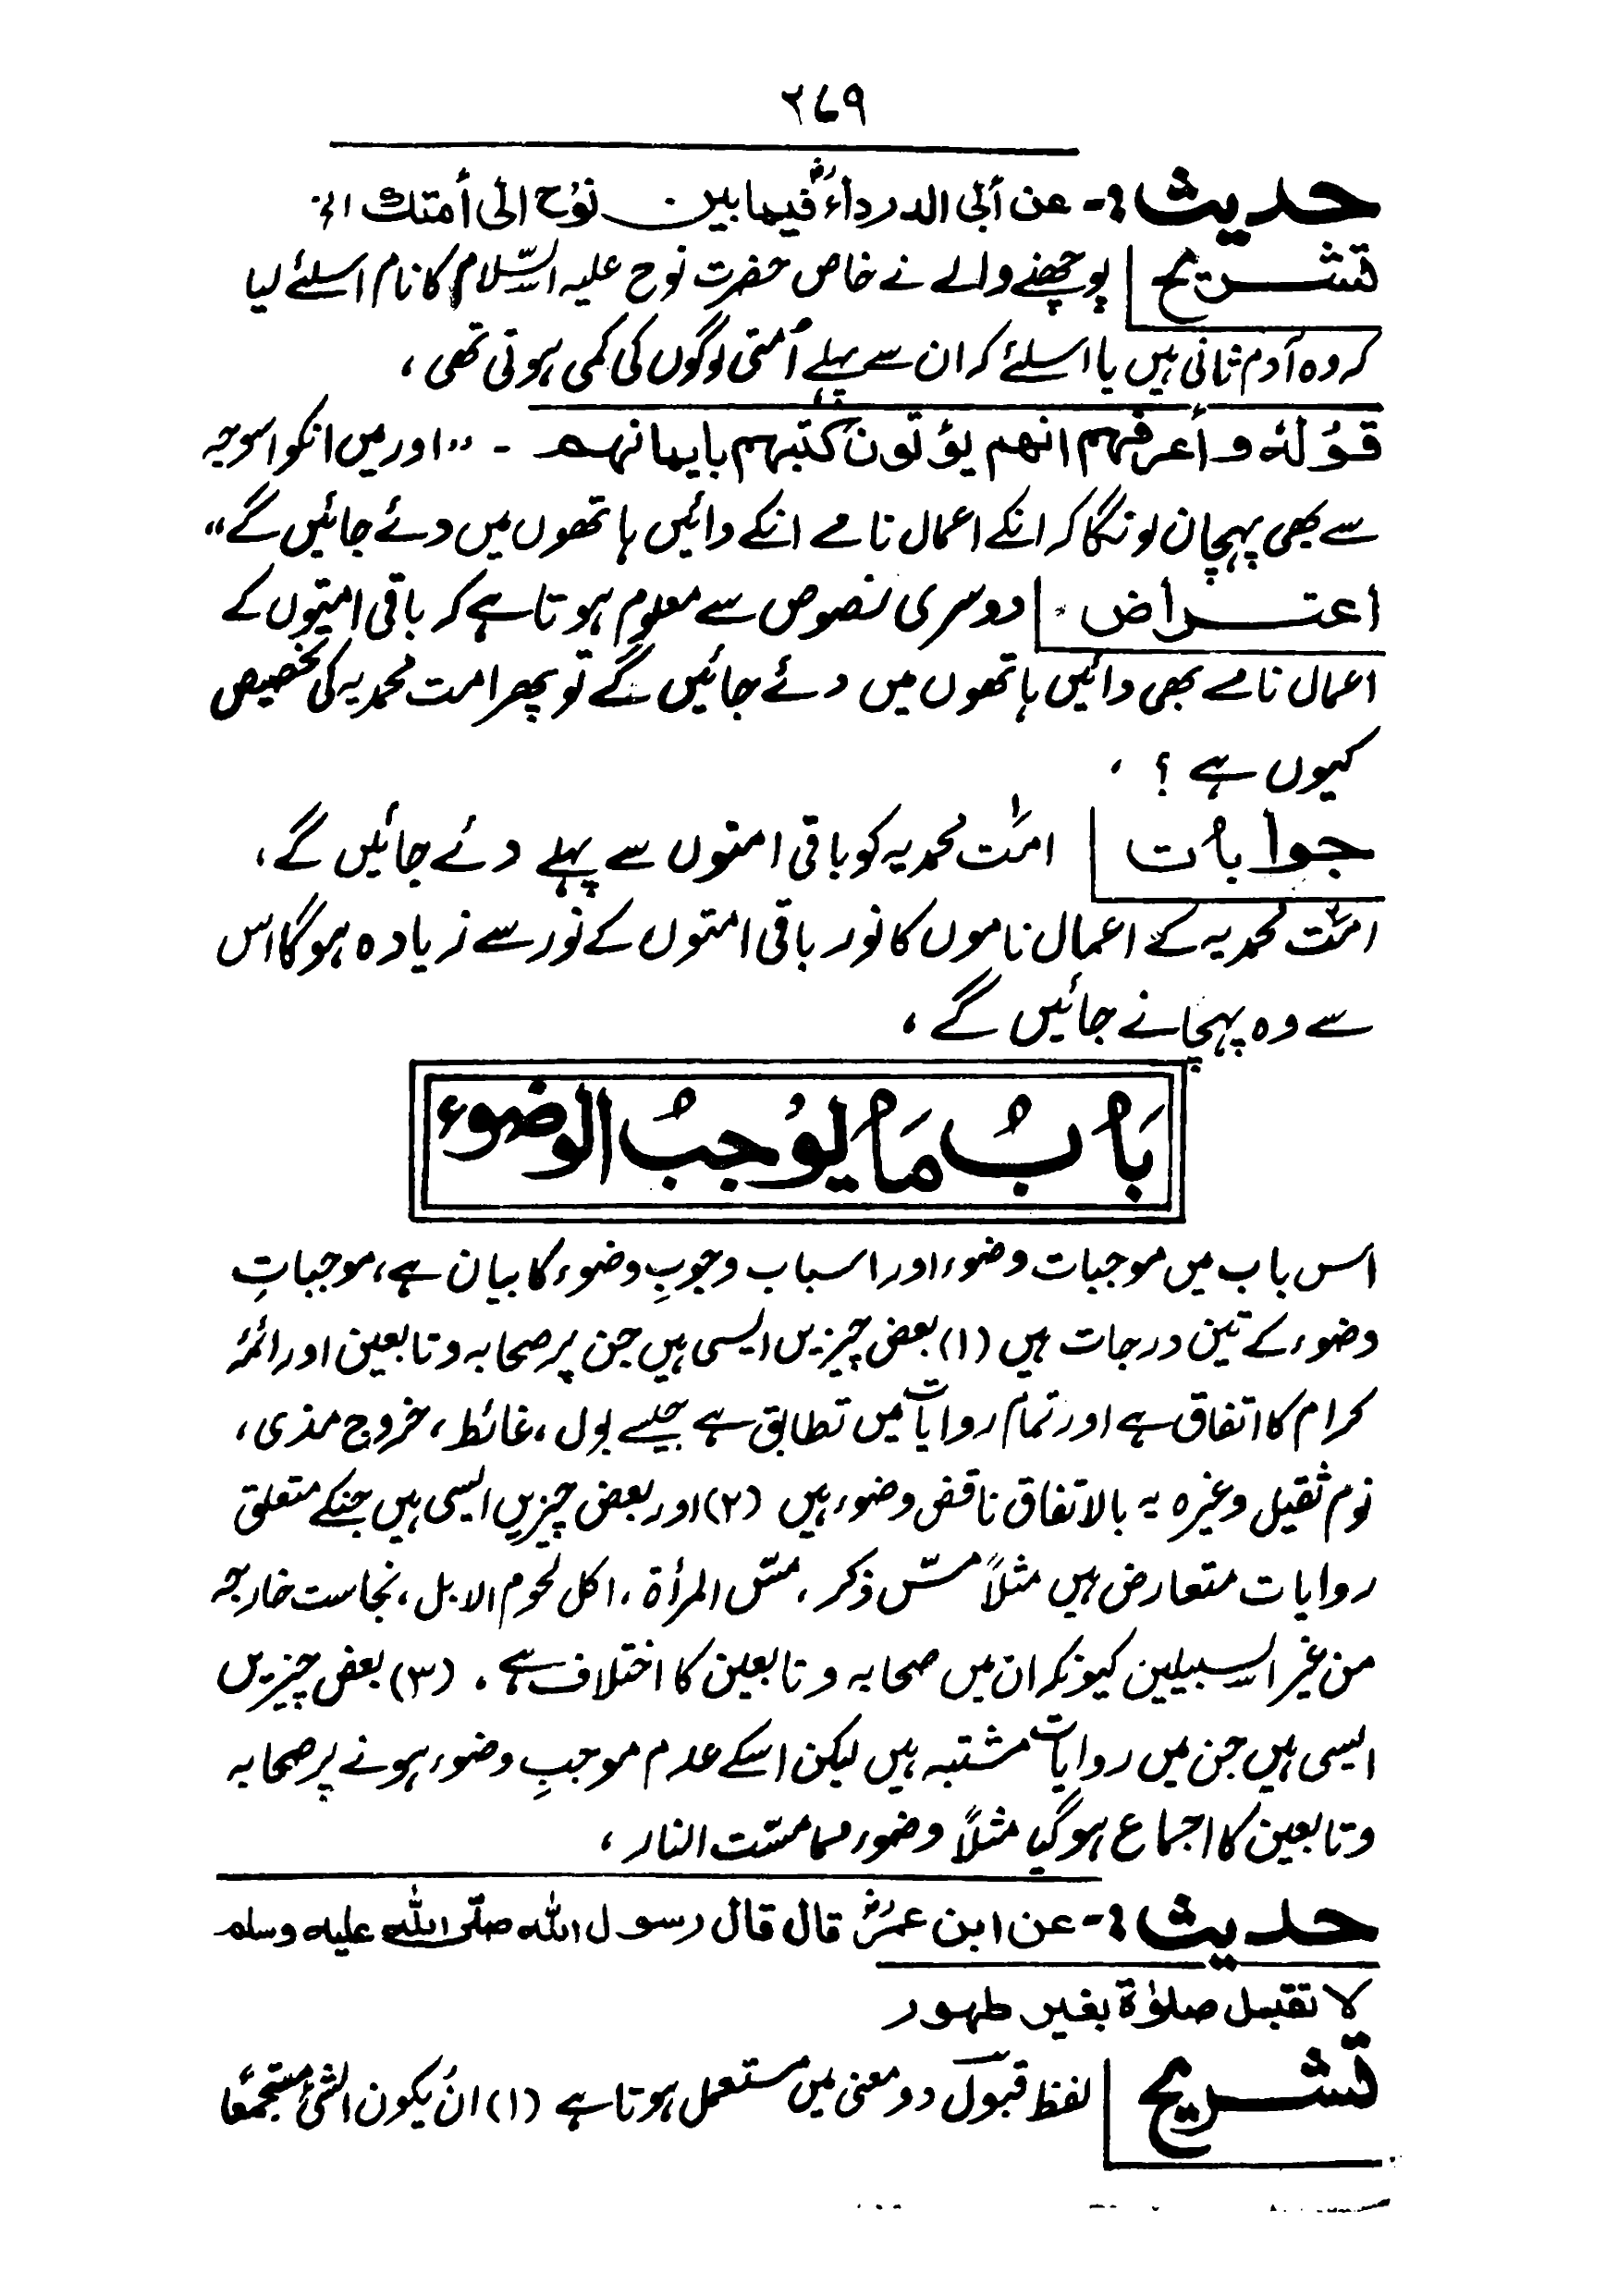 ۲۷۹
حدیث :- عن أبی الدرداءؓ فیما بین نوُح الی أمتك الخ
تشریح | پوچھنے والے نے خاص حضرت نوح علیہ السّلام کا نام اسلئے لیا
کہ وہ آدم ثانی ہیں یا اسلئے کہ ان سے پہلے اُمتی لوگوں کی کمی ہوتی تھی ،
قوُلہٗ وأعرفہم انھم یؤتون کتبہم بایمانہم - ״اور میں انکو اسوجہ
سے بھی پہچان لونگا کہ انکے اعمال نامے انکے دائیں ہاتھوں میں دئے جائیں گے״
اعتراض | دوسری نصوص سے معلوم ہوتا ہے کہ باقی امتیوں کے
اعمال نامے بھی دائیں ہاتھوں میں دئے جائیں گے تو پھر امت محمدیہ کی تخصیص
کیوں ہے ؟ ،
جوابات | ۱ امّت محمدیہ کو باقی امتوں سے پہلے دئے جائیں گے ،
۲ امّت محمدیہ کے اعمال ناموں کا نور باقی امتوں کے نور سے زیادہ ہوگا اس
سے وہ پہچانے جائیں گے ،
بَابُ مَا یوُجبُ الوضوء
اس باب میں موجبات وضوء اور اسباب وجوبِ وضوء کا بیان ہے ، موجباتِ
وضوء کے تین درجات ہیں (۱) بعض چیزیں ایسی ہیں جن پر صحابہ و تابعین اور ائمۂ
کرام کا اتفاق ہے اور تمام روایات میں تطابق ہے جیسے بول ، غائط ، خروج مذی ،
نوم ثقیل وغیرہ یہ بالاتفاق ناقض وضوء ہیں (۲) اور بعض چیزیں ایسی ہیں جنکے متعلق
روایات متعارض ہیں مثلاً مسّ ذکر ، مسّ المرأۃ ، اکل لحوم الابل ، نجاست خارجہ
من غیر السبیلین کیونکہ ان میں صحابہ و تابعین کا اختلاف ہے ۔ (۳) بعض چیزیں
ایسی ہیں جن میں روایات مشتبہ ہیں لیکن اسکے عدم موجبِ وضوء ہونے پر صحابہ
و تابعین کا اجماع ہوگیا مثلاً وضوء مما مسّت النار ،
حدیث :- عن ابن عمرؓ قال قال رسول اللہ صلّی اللہ علیہ وسلم
لا تقبل صلوٰۃ بغیر طہور
تشریح | لفظ قبول دو معنی میں مستعمل ہوتا ہے (۱) ان یکون الشئ مستجمعًا